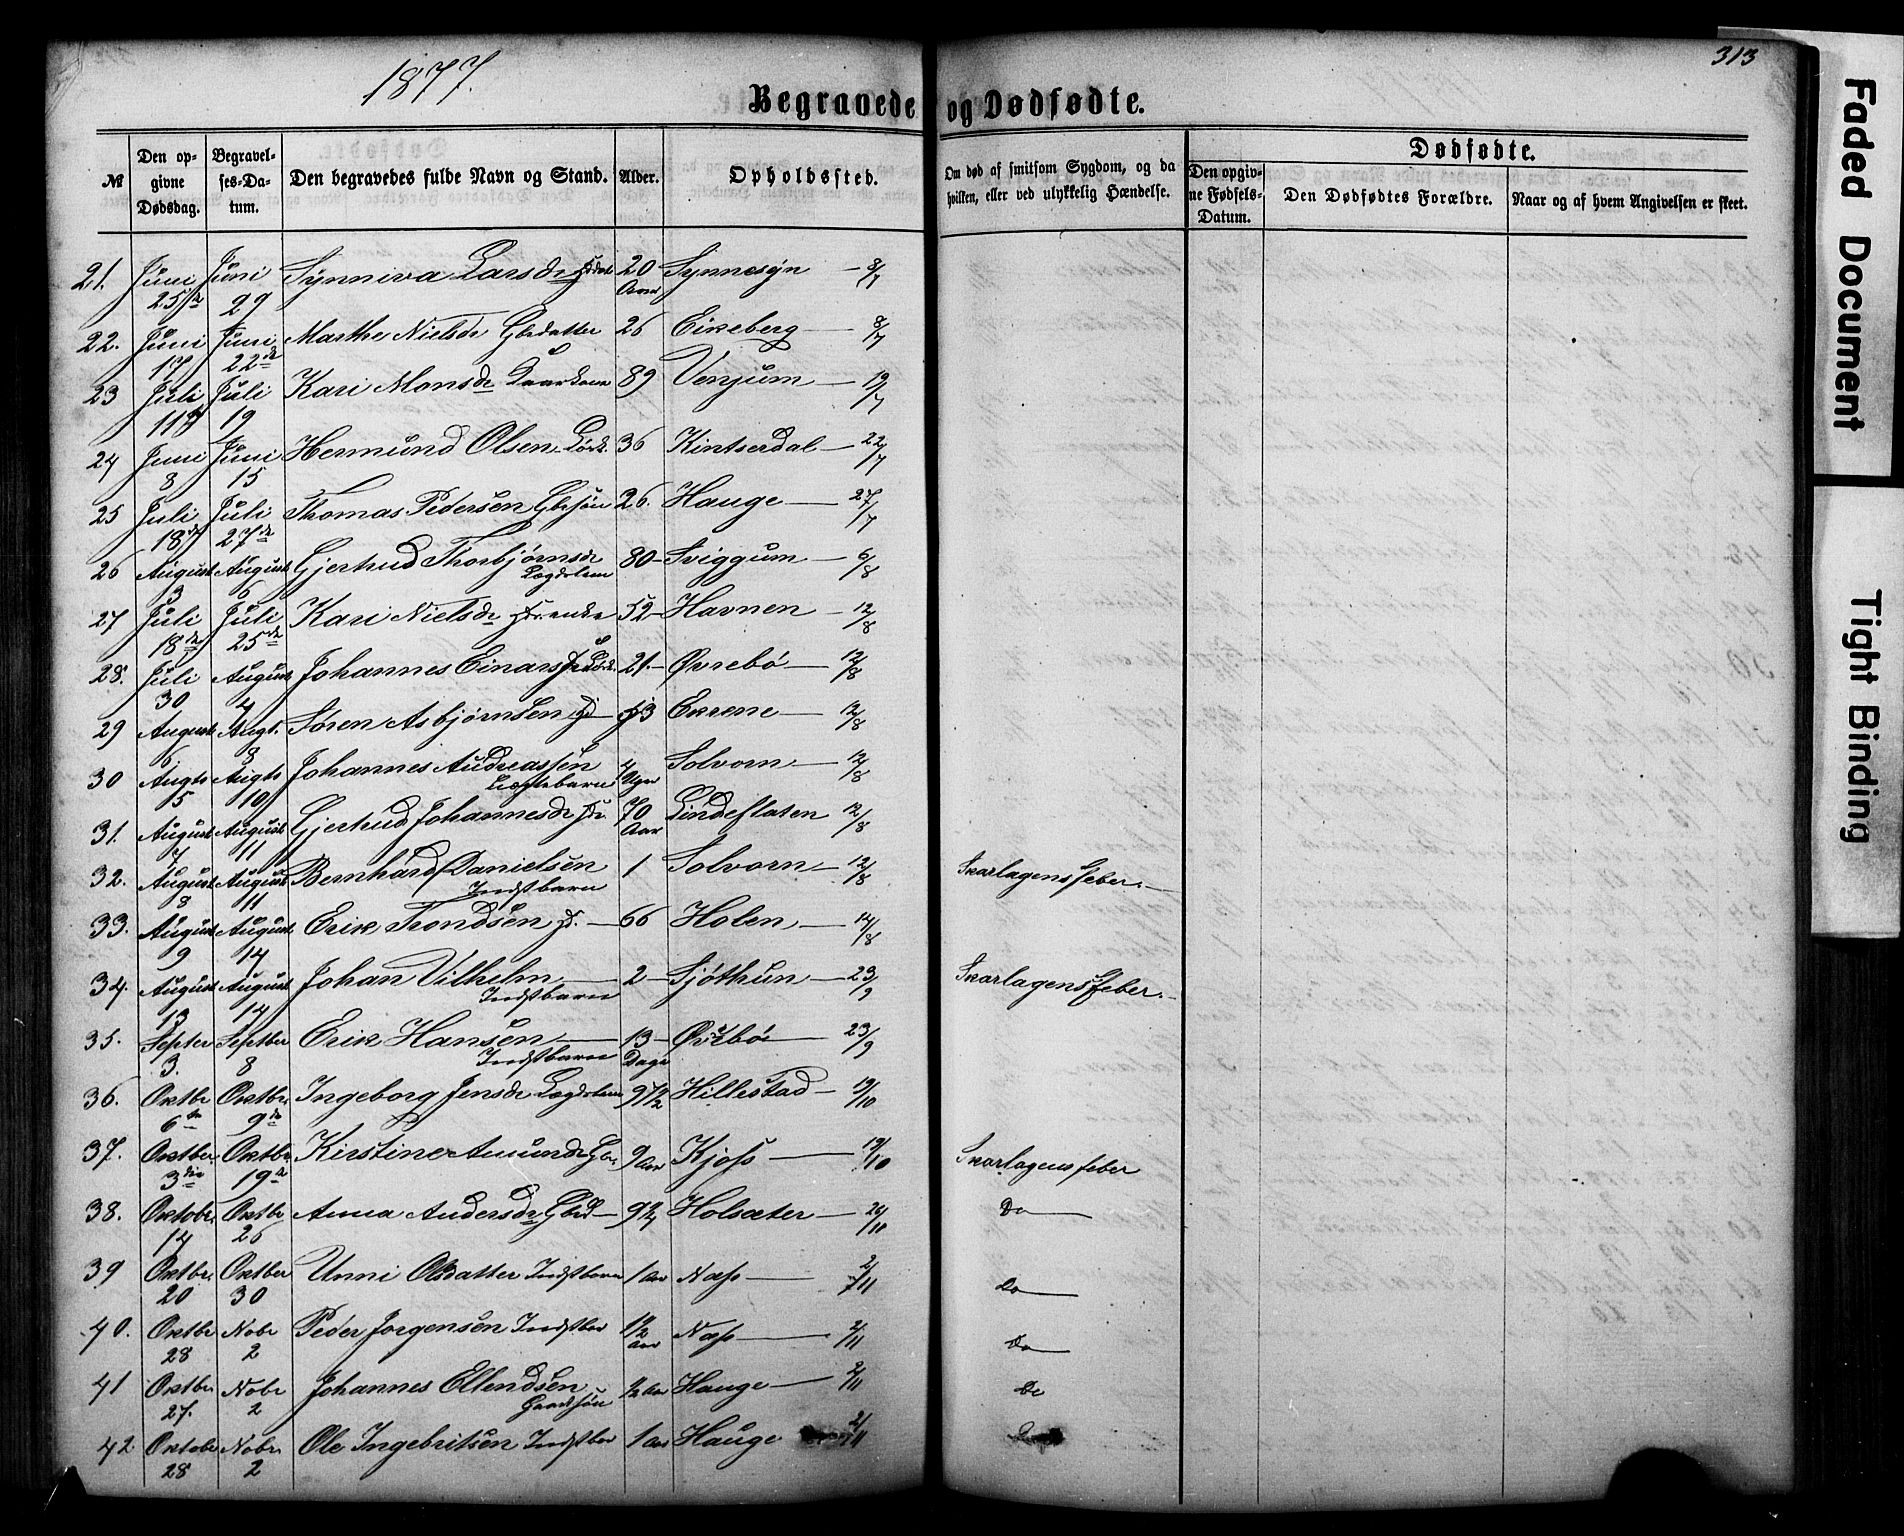 1877.
313
Begravede og Dødfødte.
№
Den opgivne Dødsdag.
Begravelses-Datum.
Den begravedes fulde Navn og Stand.
Alder.
Opholdssted.
Om død af smitsom Sygdom, og da hvilken, eller ved ulykkelig Hændelse.
Dødfødte.
Den opgivne Fødsels-Datum.
Den Dødfødtes Forældre.
Naar og af hvem Angivelsen er skeet.
21. Juni 25 Juni 29 Synniva Larsdr 20 Aar Synnesyn — 8/7
22. Juni 17 Juni 22de Marthe Nielsdr Gbrdatter 26 Eikeberg — 8/7
23 Juli 11 Juli 19 Kari Monsdr Kaarkone 89 Venjum — 19/7
24 Juni 8 Juni 15 Hermund Olsen 36 Kintserdal — 22/7
25 Juli 18de Juli 27de Thomas Pedersen Gbrsøn 26. Hauge — 27/7
26 August 3 August 6 Gjertrud Thorbjørnsdr Lægdslem 80 — Sviggum — 6/8
27 Juli 18de Juli 25de Kari Nielsdr enke 52 — Havnen — 12/8
28. Juli 30 August 4 Johannes Einarsen 21. — Øvrebø — 12/8
29 August 6 Augt. 8 Søren Asbjørnsen 53 Ekrene — 12/8
30 Augts 5 Augts 10 Johannes Andreassen Uægtebarn 4 Uger Solvorn — 12/8
31. August 7 August 11 Gjertrud Johannesdr 70 Aar Lindeflaten 12/8
32. August 8 August 11 Bernhard Danielsen Indstbarn 1 Solvorn — 12/8 Skarlagensfeber. —
33. August 9 August 14 Erik Trondsen — 66 Holen — 14/8
34. August 13 August 14 Johan Vilhelm — Indstbarn 2 — Sjøthun — 23/9 Skarlagensfeber. —
35. Septer 3. Septber 8 Erik Hansen — Indstbarn 13 — Dage Øvrebø 23/9
36. Oktbr 6te Oktbr. 9de Ingeborg Jensdr Lægdslem Hillestad — 19/10
37. Oktber 3die Oktbr 19de Kirstine Amundsdr 9 Aar Kjos — 19/10 Skarlagensfeber
38. Oktobr 14 Oktbr 26 Anna Andersdr — Holsæter — 26/11 Do —
39 Oktbr. 20 Oktber 30 Unni Olsdatter Indstbarn 1 Aar Næss — 2/11 Do —
40. Oktbr 28 Nobr 2 Peder Jørgensen Indstbar 1 1/2 Aar Næss — 2/11 Do —
41 Oktbr 27. Nobr 2 Johannes Ellendsen Gaardsøn 1/2 Aar Hauge — 2/11 Do
42 Oktobr 28 Nobr. 2 Ole Ingebritsen Indstbar 1 Aar Hauge 2/11
Faded Document
Tight Binding